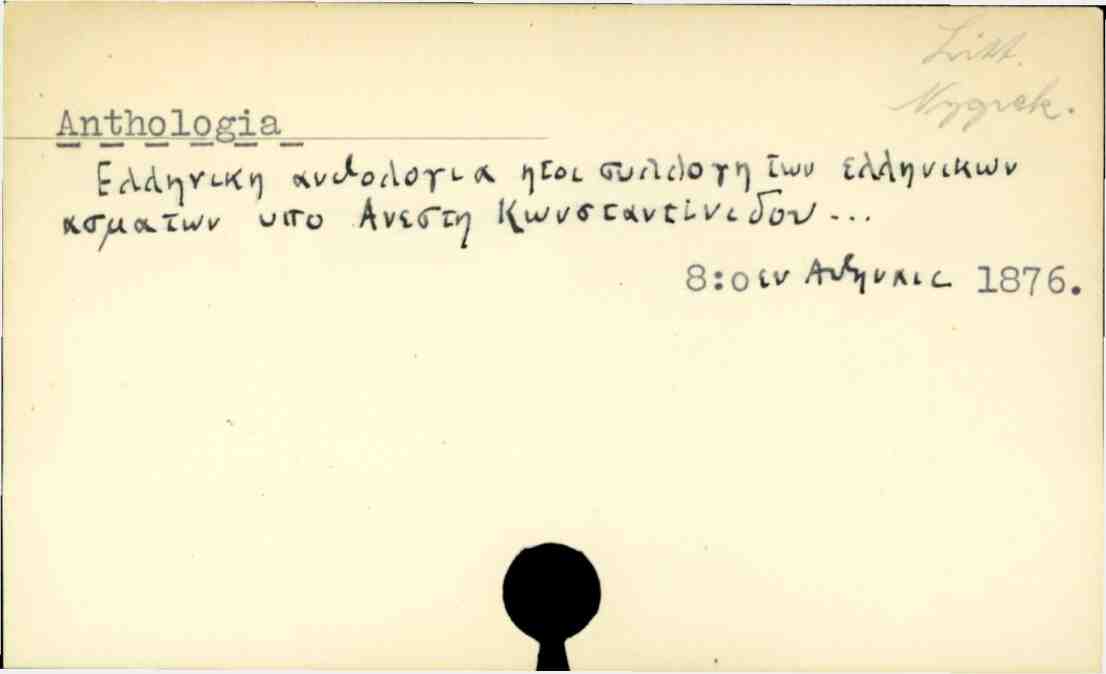 Litt.
Nygrek.
Anthologia
Ελληνικη ανθολογια ητοι συλλογη των ελληνικων
ασματων υπο Ανεστη Κωνσταντινιδου...
8:o εν Αθηναις 1876.